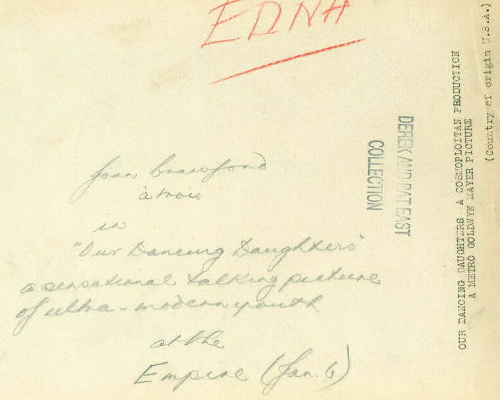 EDNA
Joan Crawford
in
"Our Dancing Daughters"
a sensational talking picture
of ultra-modern youth
at the
Empire (Jan. 6)
DEREK AND PAT EAST
COLLECTION
OUR DANCING DAUGHTERS A COSMOPLOITAN PRODUCTION
A METRO GOLDWYN MAYER PICTURE
(Country of origin U.S.A.)